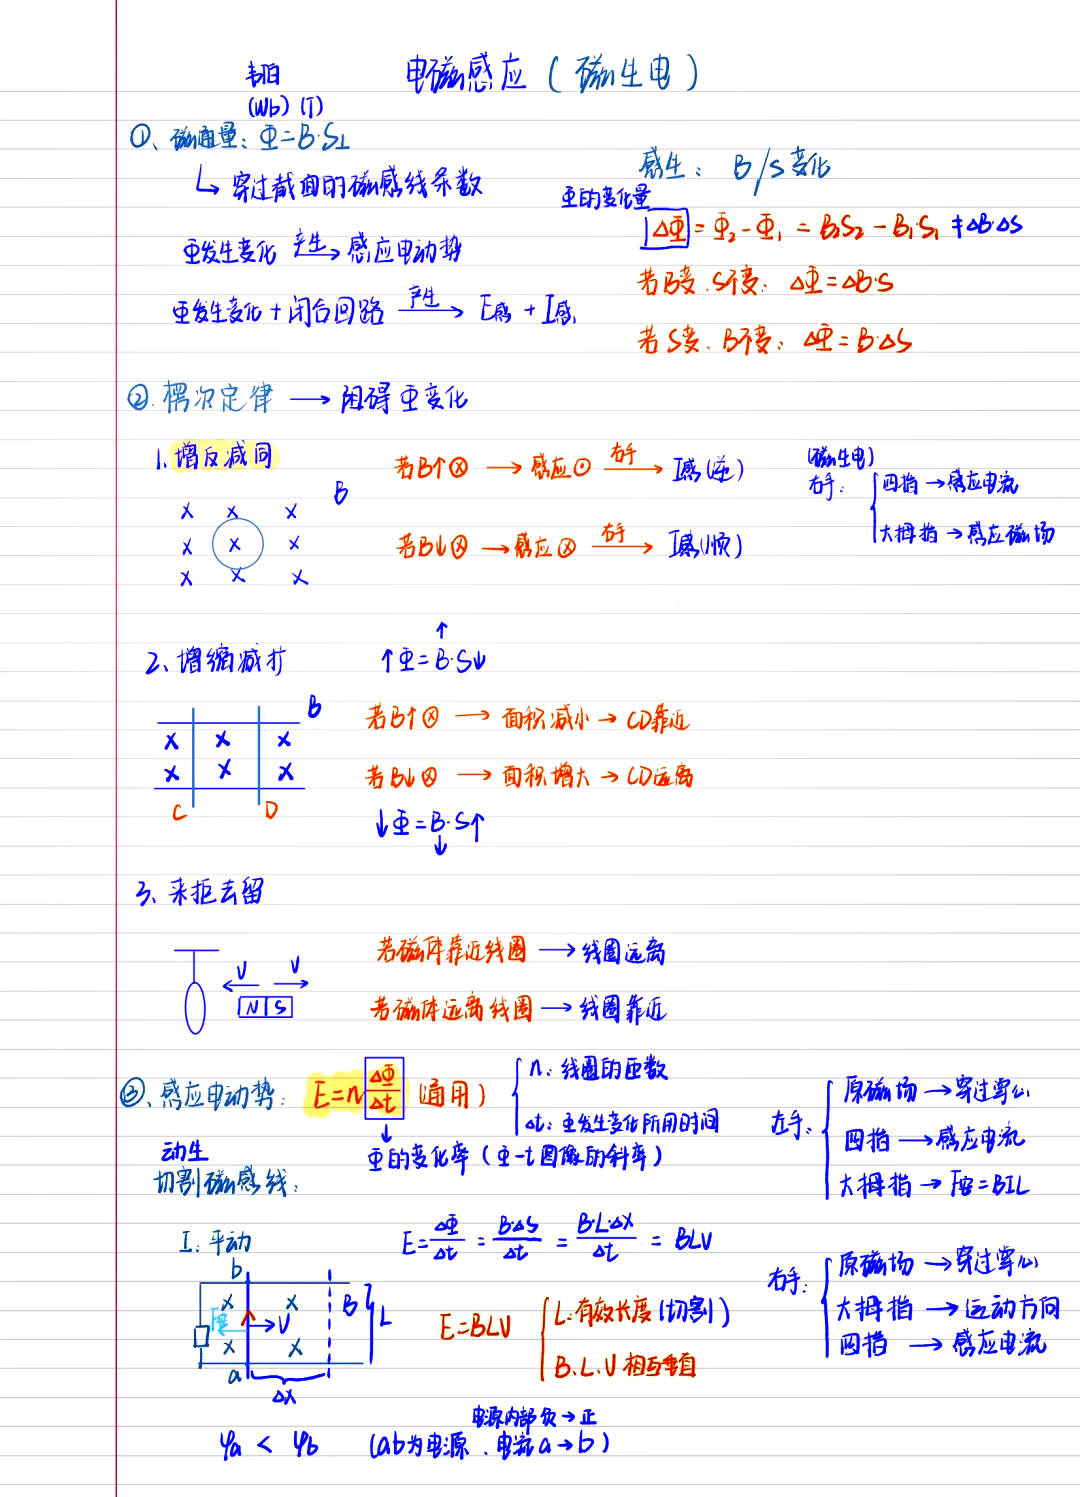 电磁感应（磁生电）
韦伯
(Wb) (T)
①、磁通量：Φ=B·S⊥
↳ 穿过截面的磁感线条数
感生：B/S变化
Φ的变化量
ΔΦ = Φ₂-Φ₁ = B₂S₂-B₁·S₁ ≠ΔB·ΔS
Φ发生变化 产生→ 感应电动势
若B变.S不变：ΔΦ=ΔB·S
Φ发生变化+闭合回路 产生→ E感+I感
若S变、B不变：ΔΦ=B·ΔS
②.楞次定律 → 阻碍Φ变化
1.增反减同
若B↑⊗ → 感应⊙ 右手→ I感(逆)
(磁生电)
右手：
四指→感应电流
大拇指→感应磁场
B
× × ×
× × ×
× × ×
若B↓⊗ → 感应⊗ 右手→ I感(顺)
2、增缩减扩
↑Φ=B↑·S↓
B
× × ×
× × ×
C D
若B↑⊗ → 面积减小→CD靠近
若B↓⊗ → 面积增大→CD远离
↓Φ=B↓·S↑
3、来拒去留
V V
N S
若磁体靠近线圈 → 线圈远离
若磁体远离线圈 → 线圈靠近
③、感应电动势：E=n ΔΦ/Δt (通用)
n：线圈的匝数
Δt：Φ发生变化所用时间
Φ的变化率（Φ-t图像的斜率）
左手：
原磁场→穿过掌心
四指→感应电流
大拇指→F安=BIL
动生
切割磁感线：
I：平动
E=ΔΦ/Δt = B·ΔS/Δt = B·L·ΔX/Δt = BLV
右手：
原磁场→穿过掌心
大拇指→运动方向
四指→感应电流
b
× ×
F安 V B L
× ×
a
ΔX
E=BLV
L：有效长度(切割)
B.L.V相互垂直
电源内部负→正
φa < φb （ab为电源、电流a→b）